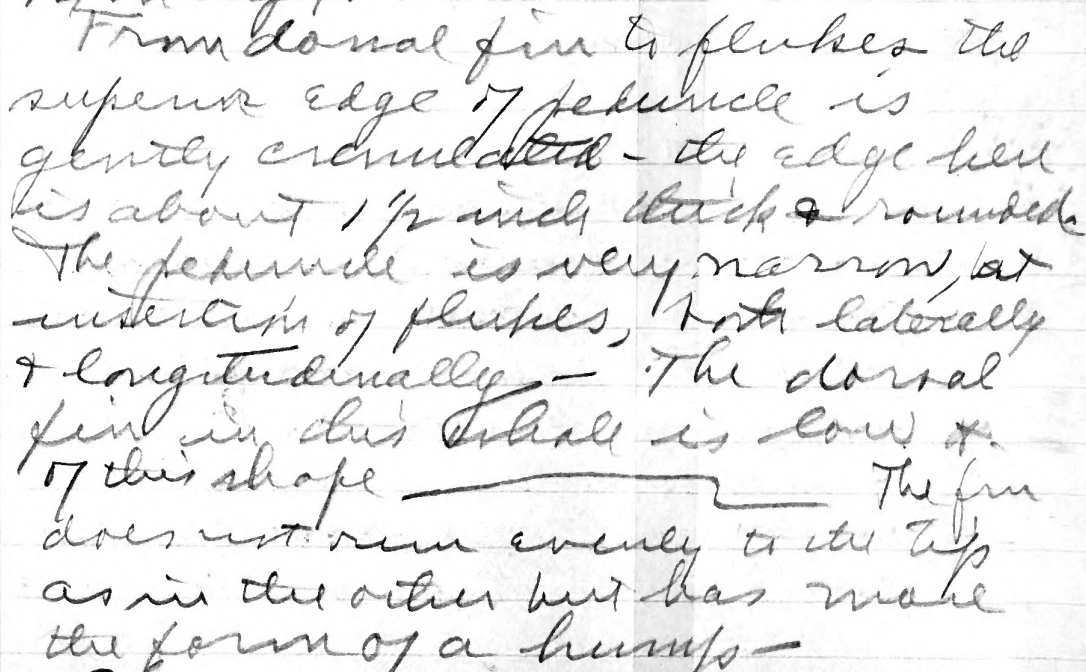 From dorsal fin to flukes the
superior edge of peduncle is
gently crenulated - the edge here
is about 1 1/2 inch thick & rounded
The peduncle is very narrow, at
insertion of flukes, both laterally
& longitudinally - The dorsal
fin in this whale is low &
of this shape The fin
does not run evenly to the tip
as in the other but has more
the form of a hump -